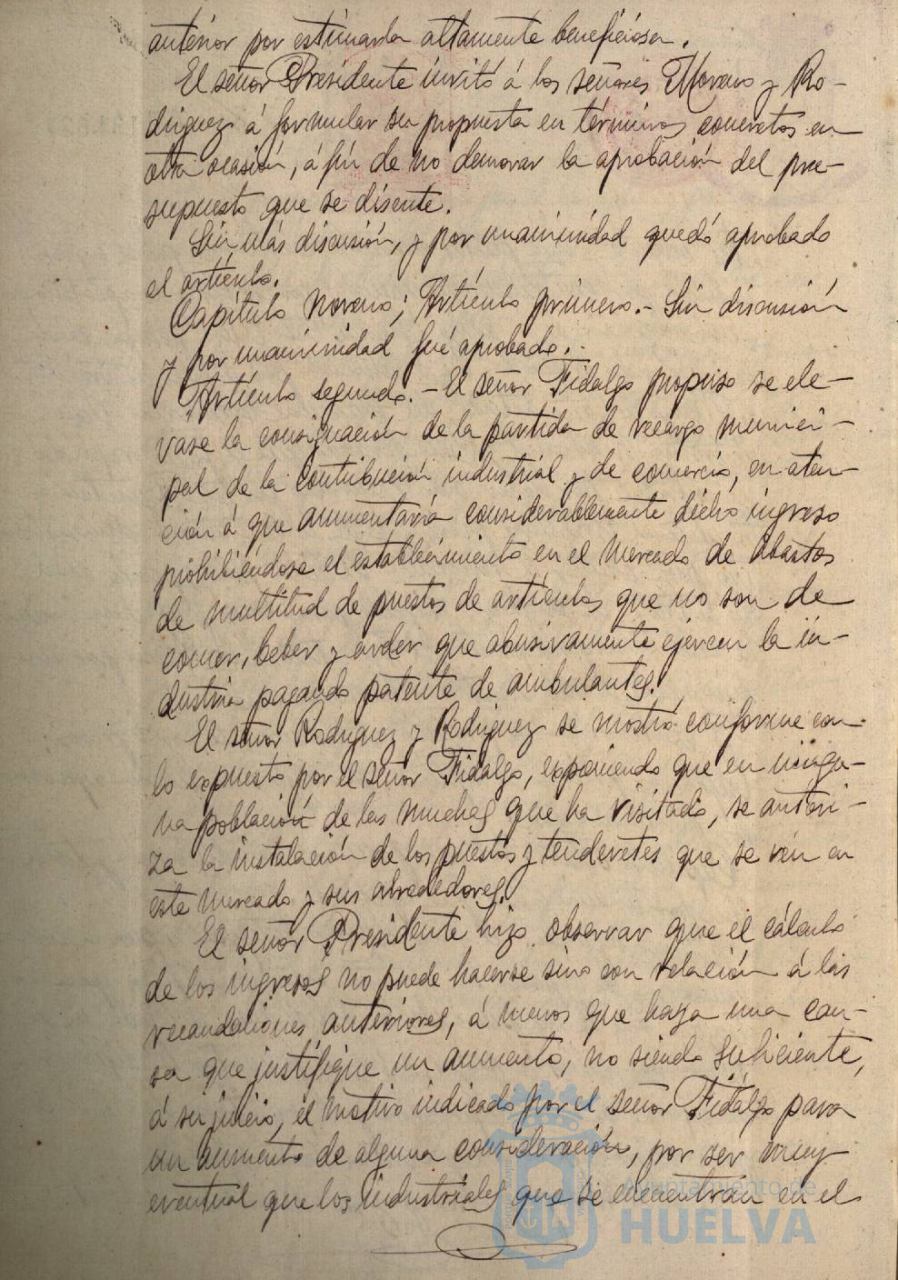 anterior por estimarla altamente beneficiosa.
El señor Presidente invitó á los señores Moreno y Ro-
driguez á formular su propuesta en términos concretos en
otra ocasión, á fin de no demorar la aprobación del pre-
supuesto que se discute.
Sin más discusión, y por unanimidad quedó aprobado
el artículo.
Capítulo noveno; Artículo primero.- Sin discusión
y por unanimidad fué aprobado.
Artículo segundo.- El señor Fidalgo propuso se ele-
vase la consignación de la partida de recargo munici-
pal de la contribución industrial y de comercio, en aten-
ción á que aumentaría considerablemente dicho ingreso
prohibiéndose el establecimiento en el Mercado de Abastos
de multitud de puestos de artículos que no son de
comer, beber y arder que abusivamente ejercen la in-
dustria pagando patente de ambulantes.
El señor Rodriguez y Rodriguez se mostró conforme con
lo expuesto por el señor Fidalgo, exponiendo que en ningu-
na población de las muchas que ha visitado, se autori-
za la instalación de los puestos y tenderetes que se ven en
este Mercado y sus alrededores.
El señor Presidente hizo observar que el cálculo
de los ingresos no puede hacerse sino con relación á las
recaudaciones anteriores, á menos que haya una cau-
sa que justifique un aumento, no siendo suficiente,
á su juicio, el motivo indicado por el señor Fidalgo para
un aumento de alguna consideración, por ser muy
eventual que los industriales que se encuentran en el
Ayuntamiento de
HUELVA